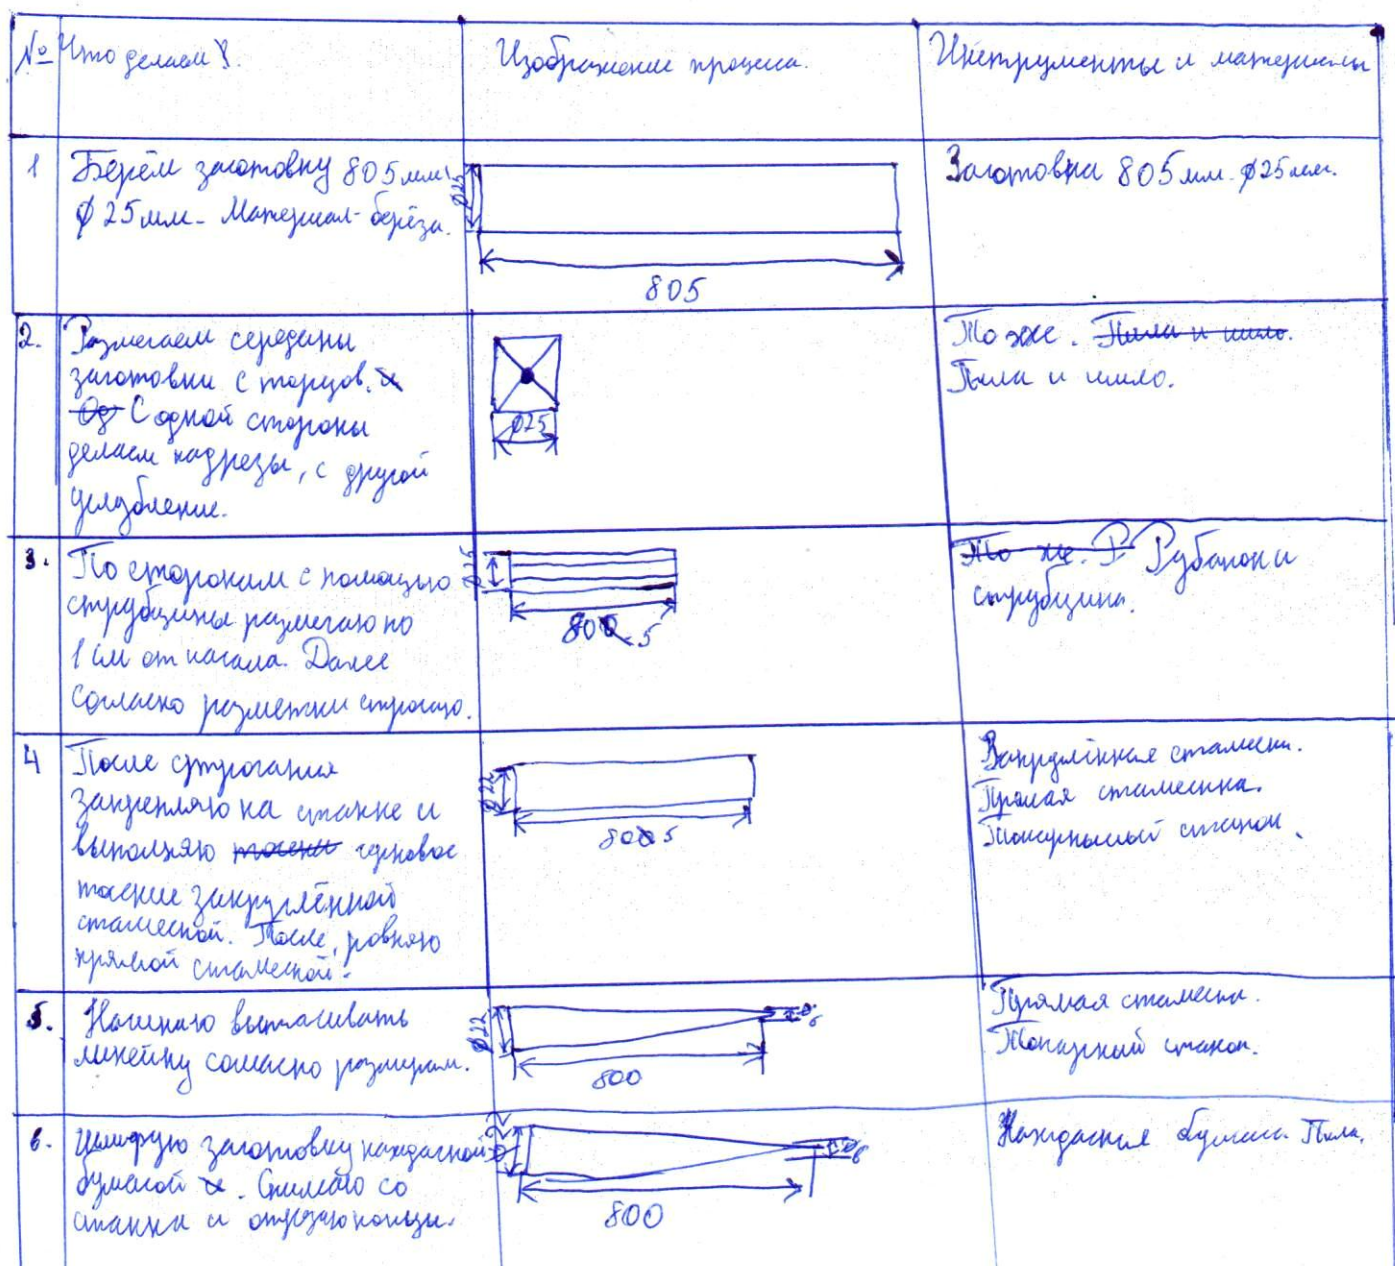 № Что делаем?
Изображение процесса.
Инструменты и материалы
1
Берём заготовку 805 мм.
ø 25 мм - Материал - берёза.
ø25
805
Заготовка 805 мм. ø25 мм.
2.
Размечаем середины
заготовки с торцов. и
Од С одной стороны
делаем надрезы, с другой
углубление.
ø25
То же. Пила и шило.
Пила и шило.
3.
По сторонам с помощью
струбцины размечаю по
1 см от начала. Далее
согласно разметки строгаю.
ø25
800 5
То же. Р Рубанок и
струбцина.
4
После строгания
закрепляю на станке и
выполняю точени черновое
точение закруглённой
стамеской. После, ровняю
прямой стамеской.
ø22
800 5
Закруглённая стамеска.
Прямая стамеска.
Токарный станок.
5.
Начинаю вытачивать
линейку согласно размерам.
ø22
800
Прямая стамеска.
Токарный станок.
6.
Шлифую заготовку наждачной
бумагой и. Снимаю со
станка и отрезаю концы.
800
Наждачная бумага. Пила.